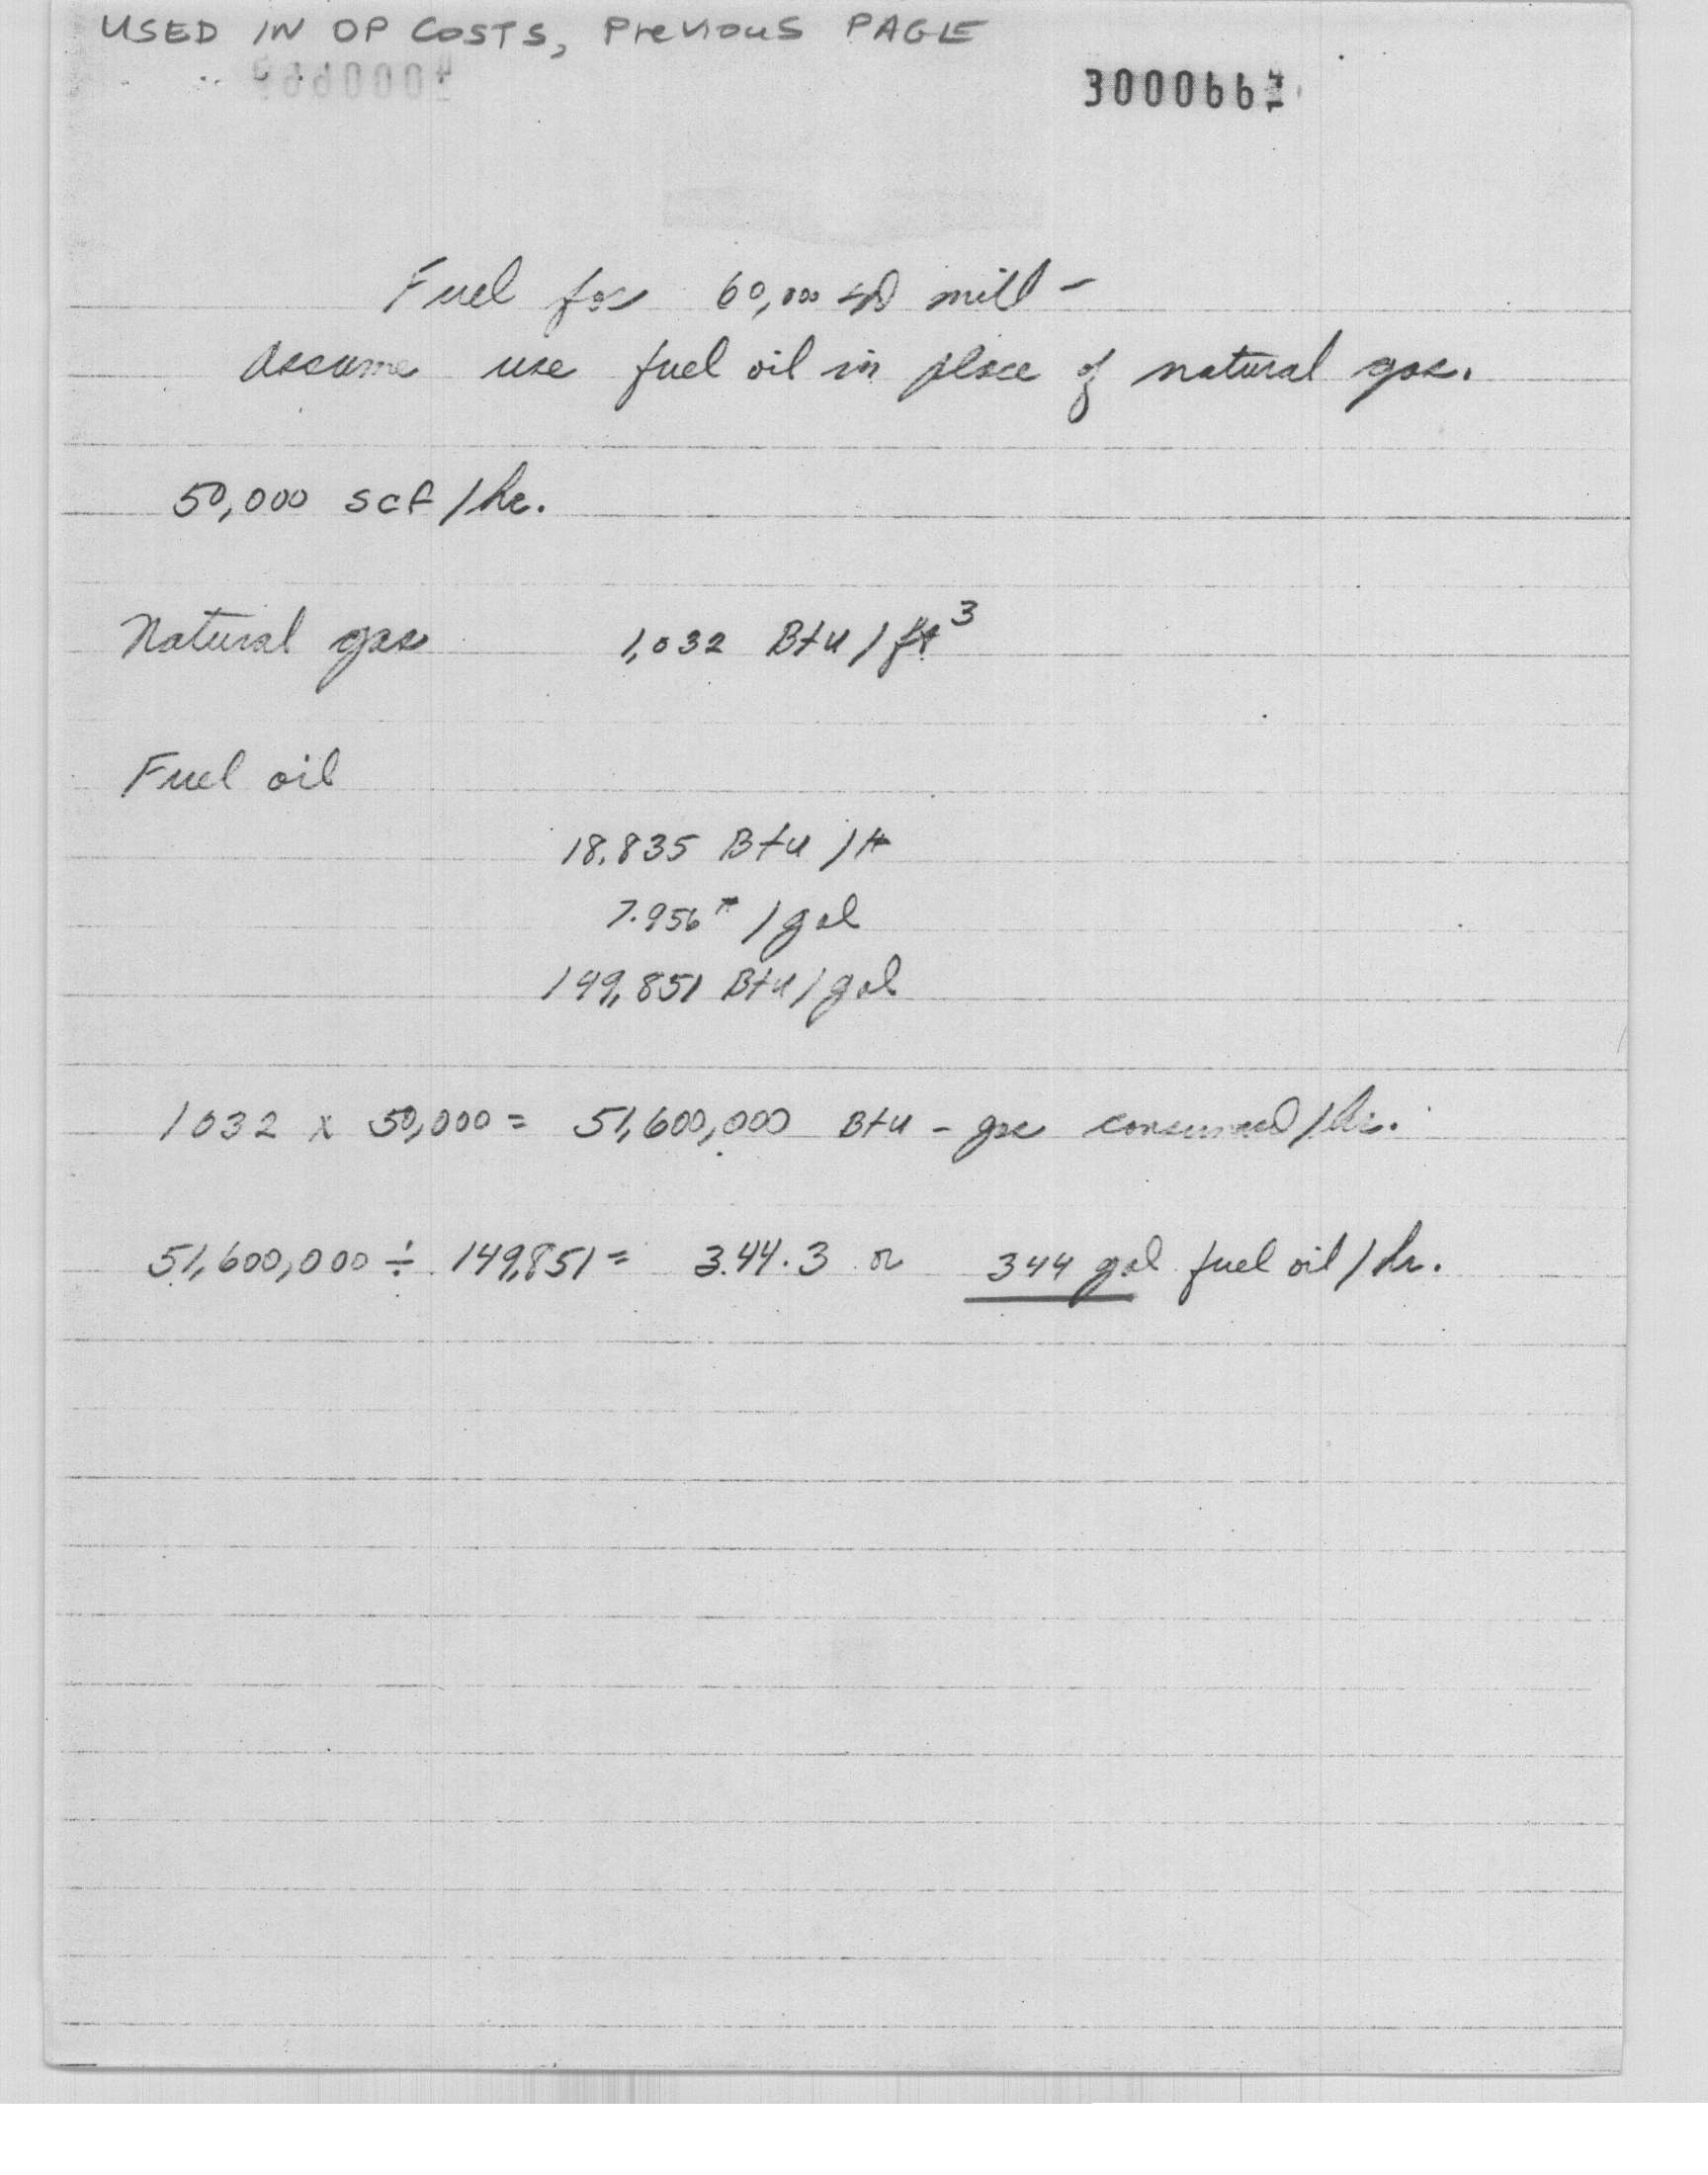 USED IN OP COSTS, Previous PAGE
300066
Fuel for 60,000 mill -
Assume use fuel oil in place of natural gas.
50,000 scf/hr.
Natural gas 1,032 Btu/ft³
Fuel oil
18.835 Btu/#
7.956 #/gal
149,851 Btu/gal
1032 x 50,000 = 51,600,000 Btu - gas consumed/hr.
51,600,000 ÷ 149,851 = 344.3 or 344 gal fuel oil/hr.